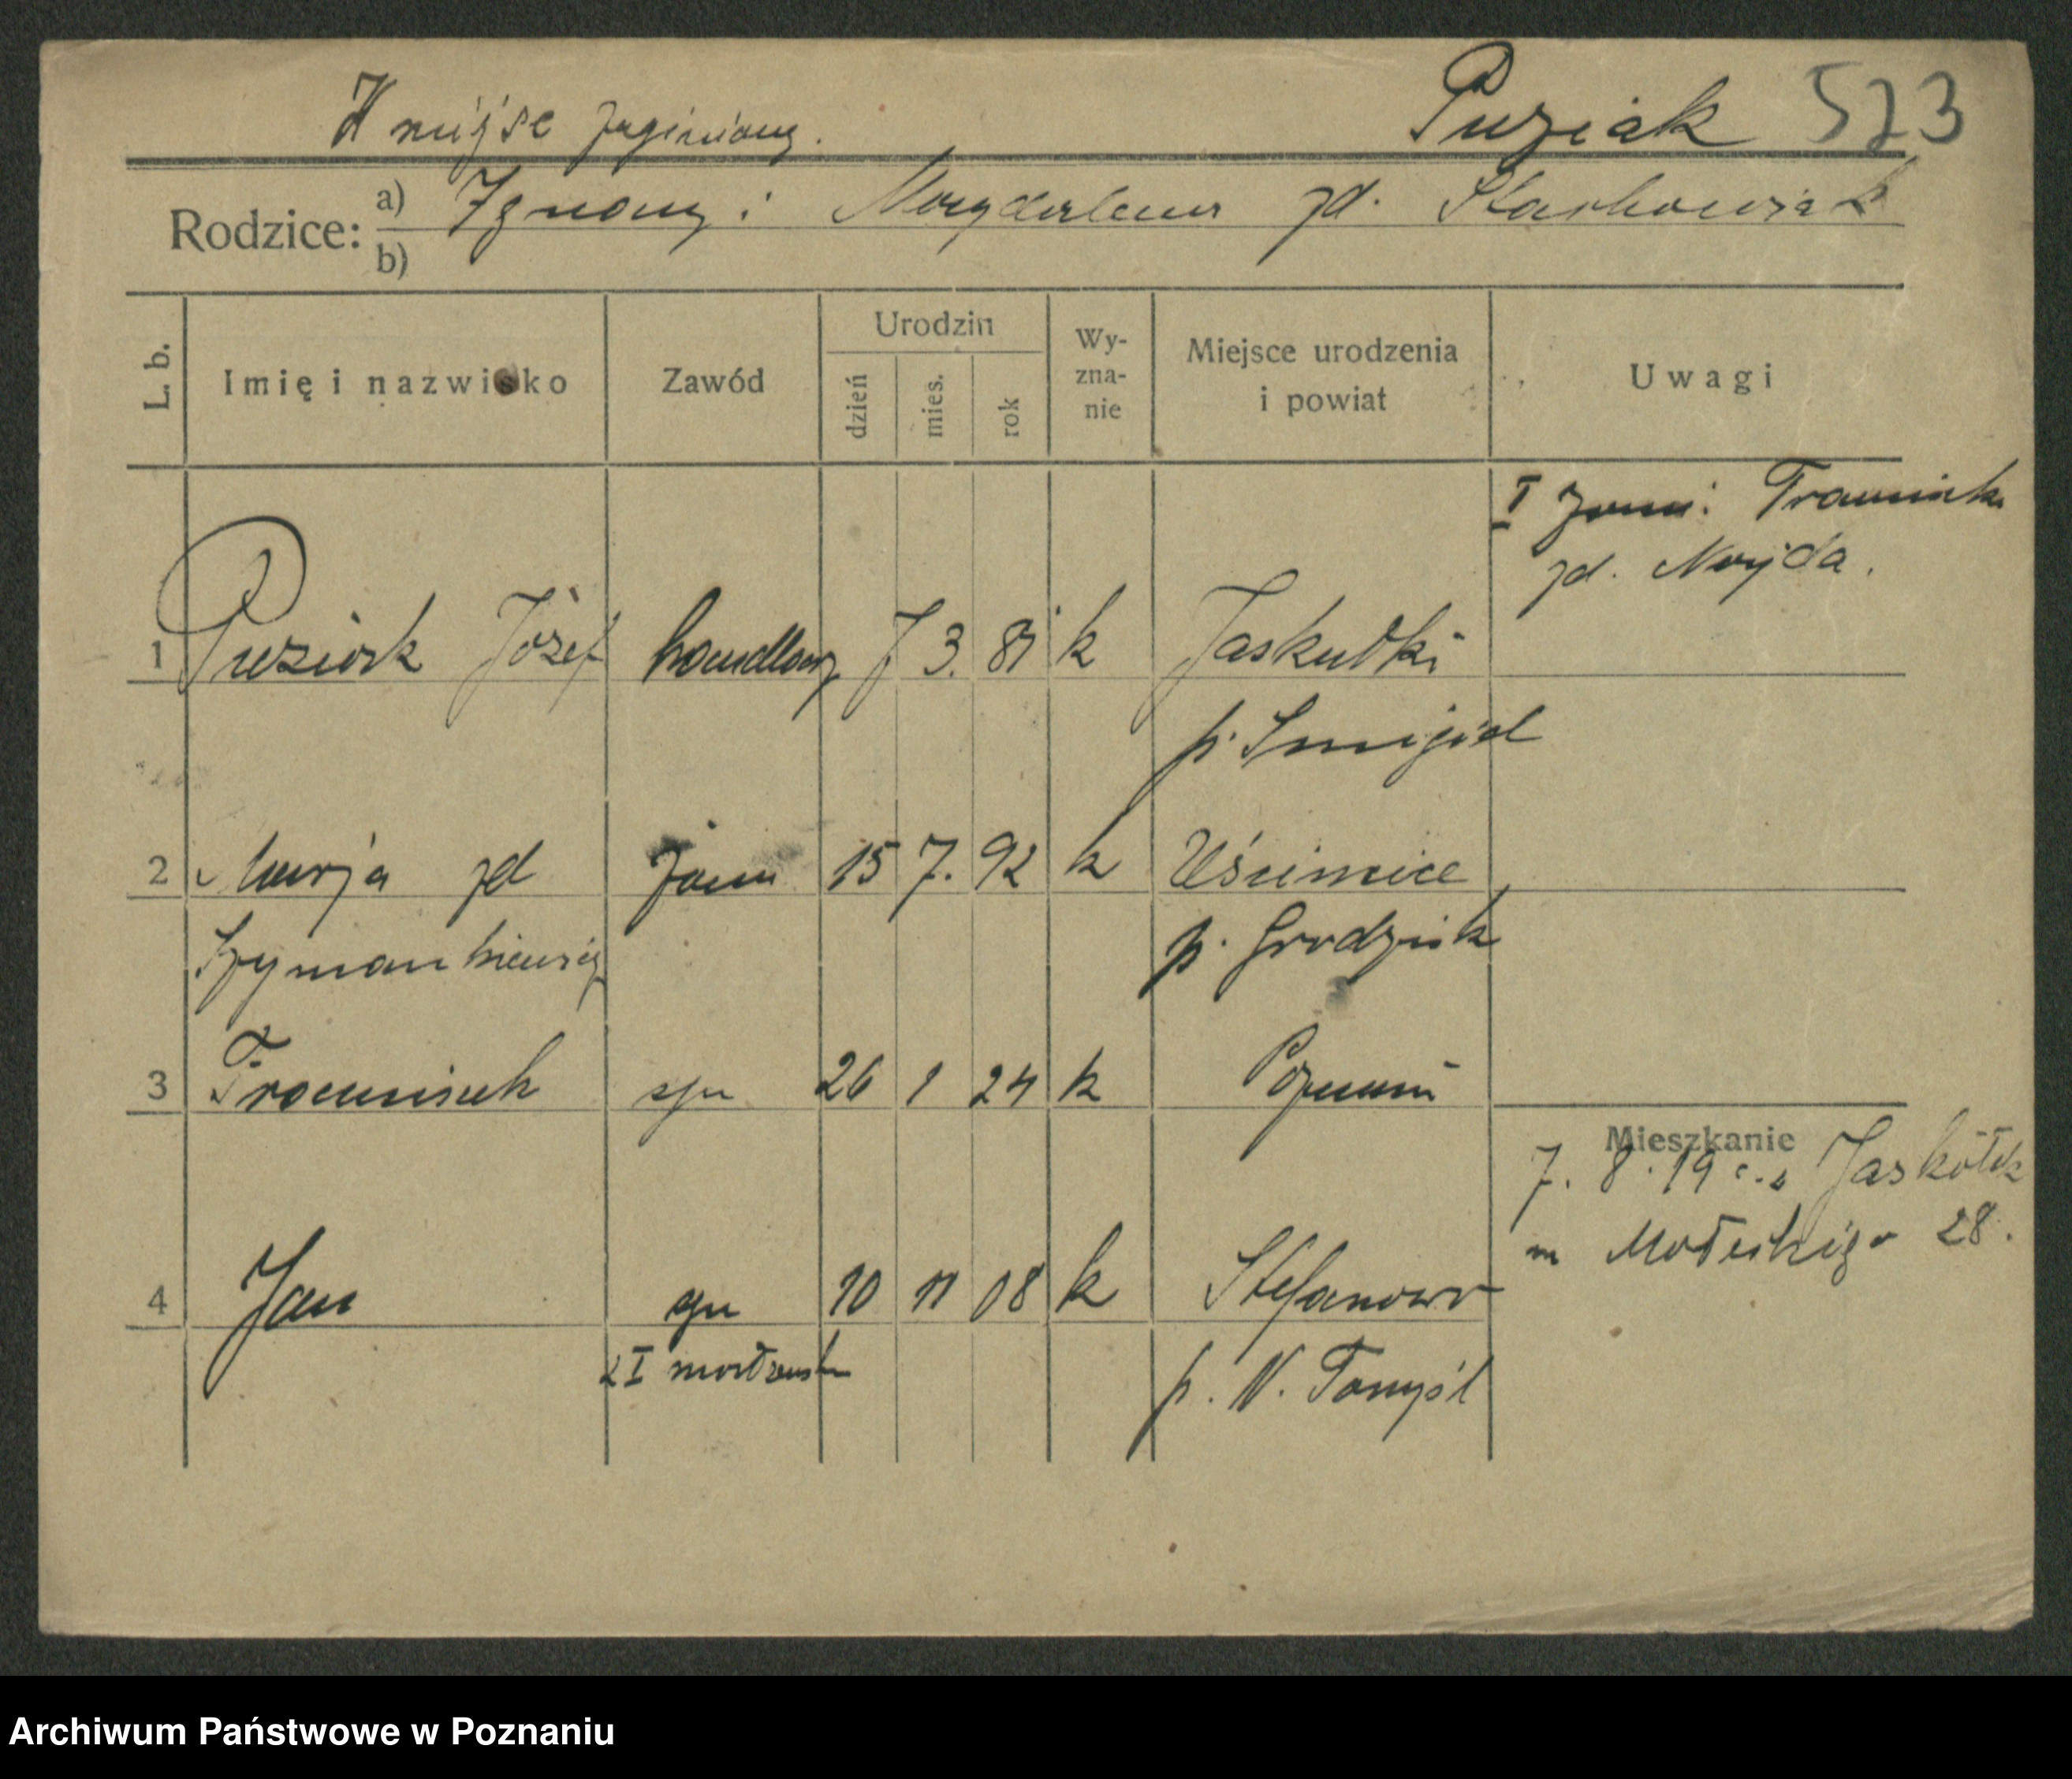 W miejsce zaginionej. Puziak 523
Rodzice: a) Ignacy i Magdalena zd. Stachowiak
b)
L. b. Imię i nazwisko Zawód Urodzin dzień mies. rok Wy-zna-nie Miejsce urodzenia i powiat Uwagi
I żona: Franciszka
zd. Nojda.
1 Puziak Józef handlarz 7 3. 81 k Jaskułki
p. Śmigiel
2 Marja zd żona 15 7. 92 k Uścimice
Szymankiewicz p. Grodzisk
3 Franciszek syn 26 1 24 k Poznań
Mieszkanie
7. 8. 19 Jaskółki
Małeckiego 28.
4 Jan syn 10 11 08 k Stefanowo
z I małżeństwa p. N. Tomyśl
Archiwum Państwowe w Poznaniu